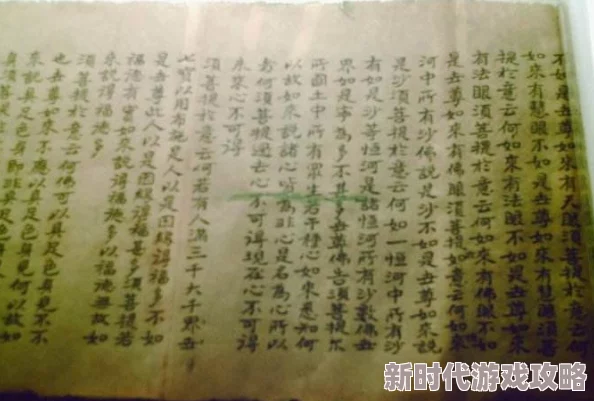 不如是世尊如來有天眼須菩提於意云何
如來有慧眼不如是世尊如來有慧眼須菩
提於意云何如來有法眼不如是世尊如來
有法眼須菩提於意云何如來有佛眼不如
是世尊如來有佛眼須菩提於意云何如恒
河中所有沙佛說是沙不如是世尊如來說
是沙須菩提於意云何如一恒河中所有沙
有如是沙等恒河是諸恒河所有沙數佛世
界如是寧為多不甚多世尊佛告須菩提尔
所國土中所有眾生若干種心如來悉知何
以故如來說諸心皆為非心是名為心所以
者何須菩提過去心不可得現在心不可得
未來心不可得
須菩提於意云何若有人滿三千大千界世
七寶以用布施是人以是因緣得福多不如
是世尊此人以是因緣得福甚多須菩提若
福德有實如來說得福德多以福德無故如
來說得福德多
須菩提於意云何佛可以具足色身見不不
也世尊如來不應以具足色身見何以故如
來說具足色身即非具足色身
新时代游戏攻略